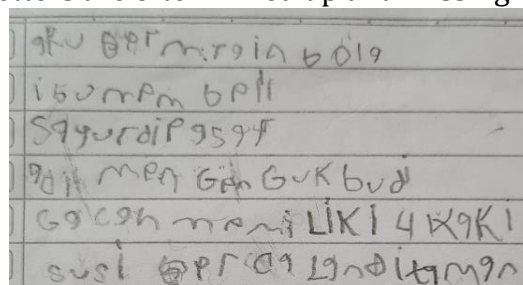 aku ber mrain bola
ibu mem beli
Sayurdipasar
men Gen GuK bud
Gacah memi LiKi 4 KaKi
susi ber landitaman